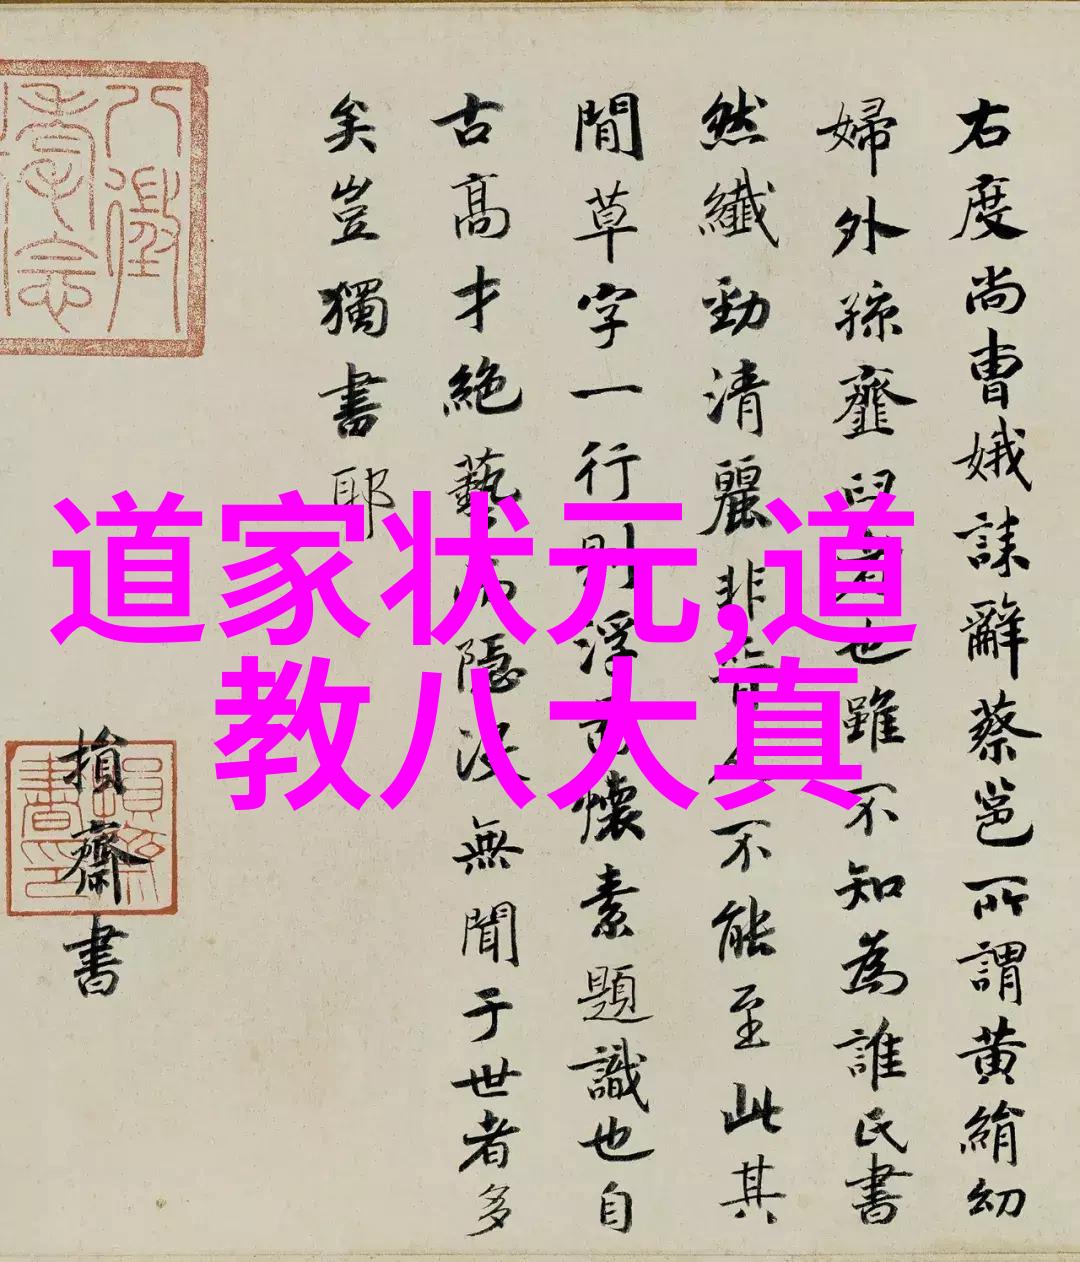 道家状元,道
教八大真
右度尚曹娥誄辭蔡邕所謂黄絹幼
婦外孫虀臼者也雖不知為誰氏書
然纖勁清麗非晉人不能至此其
閒草字一行則浮懷素題識也自
古高才絶藝而隱没無聞于世者多
矣豈獨書耶
損齋書